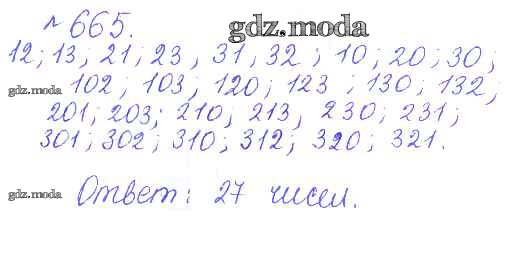 № 665.
gdz.moda
12; 13; 21; 23, 31, 32; 10; 20; 30;
gdz.moda 102; 103; 120; 123; 130; 132;
201; 203; 210; 213, 230; 231;
301; 302; 310; 312; 320; 321.
gdz.moda Ответ: 27 чисел.